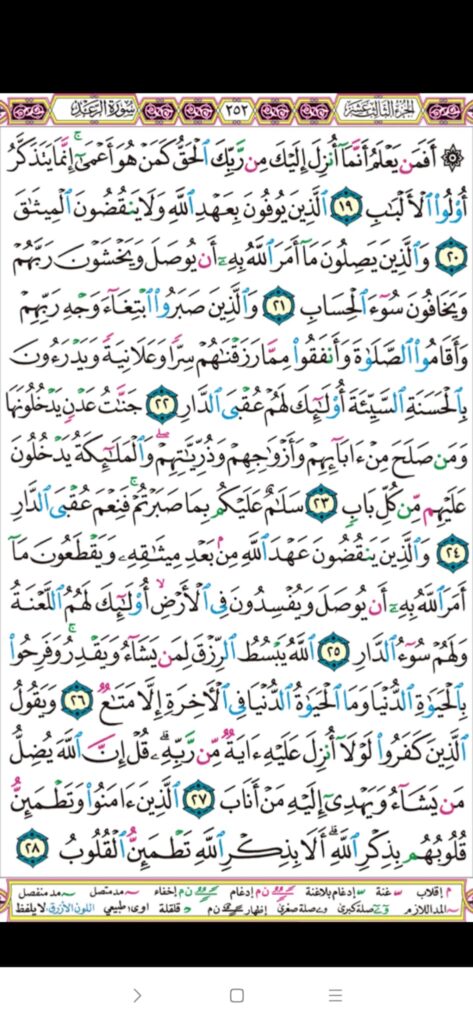 الجزء الثالث عشر ٢٥٢ سورة الرعد
۞ أَفَمَن يَعْلَمُ أَنَّمَآ أُنزِلَ إِلَيْكَ مِن رَّبِّكَ ٱلْحَقُّ كَمَنْ هُوَ أَعْمَىٰٓ ۚ إِنَّمَا يَتَذَكَّرُ
أُو۟لُوا۟ ٱلْأَلْبَـٰبِ ١٩ ٱلَّذِينَ يُوفُونَ بِعَهْدِ ٱللَّهِ وَلَا يَنقُضُونَ ٱلْمِيثَـٰقَ
٢٠ وَٱلَّذِينَ يَصِلُونَ مَآ أَمَرَ ٱللَّهُ بِهِۦٓ أَن يُوصَلَ وَيَخْشَوْنَ رَبَّهُمْ
وَيَخَافُونَ سُوٓءَ ٱلْحِسَابِ ٢١ وَٱلَّذِينَ صَبَرُوا۟ ٱبْتِغَآءَ وَجْهِ رَبِّهِمْ
وَأَقَامُوا۟ ٱلصَّلَوٰةَ وَأَنفَقُوا۟ مِمَّا رَزَقْنَـٰهُمْ سِرًّا وَعَلَانِيَةً وَيَدْرَءُونَ
بِٱلْحَسَنَةِ ٱلسَّيِّئَةَ أُو۟لَـٰٓئِكَ لَهُمْ عُقْبَى ٱلدَّارِ ٢٢ جَنَّـٰتُ عَدْنٍ يَدْخُلُونَهَا
وَمَن صَلَحَ مِنْ ءَابَآئِهِمْ وَأَزْوَٰجِهِمْ وَذُرِّيَّـٰتِهِمْ ۖ وَٱلْمَلَـٰٓئِكَةُ يَدْخُلُونَ
عَلَيْهِم مِّن كُلِّ بَابٍ ٢٣ سَلَـٰمٌ عَلَيْكُم بِمَا صَبَرْتُمْ ۚ فَنِعْمَ عُقْبَى ٱلدَّارِ
٢٤ وَٱلَّذِينَ يَنقُضُونَ عَهْدَ ٱللَّهِ مِنۢ بَعْدِ مِيثَـٰقِهِۦ وَيَقْطَعُونَ مَآ
أَمَرَ ٱللَّهُ بِهِۦٓ أَن يُوصَلَ وَيُفْسِدُونَ فِى ٱلْأَرْضِ ۙ أُو۟لَـٰٓئِكَ لَهُمُ ٱللَّعْنَةُ
وَلَهُمْ سُوٓءُ ٱلدَّارِ ٢٥ ٱللَّهُ يَبْسُطُ ٱلرِّزْقَ لِمَن يَشَآءُ وَيَقْدِرُ ۚ وَفَرِحُوا۟
بِٱلْحَيَوٰةِ ٱلدُّنْيَا وَمَا ٱلْحَيَوٰةُ ٱلدُّنْيَا فِى ٱلْـَٔاخِرَةِ إِلَّا مَتَـٰعٌ ٢٦ وَيَقُولُ
ٱلَّذِينَ كَفَرُوا۟ لَوْلَآ أُنزِلَ عَلَيْهِ ءَايَةٌ مِّن رَّبِّهِۦ ۗ قُلْ إِنَّ ٱللَّهَ يُضِلُّ
مَن يَشَآءُ وَيَهْدِىٓ إِلَيْهِ مَنْ أَنَابَ ٢٧ ٱلَّذِينَ ءَامَنُوا۟ وَتَطْمَئِنُّ
قُلُوبُهُم بِذِكْرِ ٱللَّهِ ۗ أَلَا بِذِكْرِ ٱللَّهِ تَطْمَئِنُّ ٱلْقُلُوبُ ٢٨
م إقلاب غنة إدغام بلاغنة ن م إدغام ن م إخفاء مد متصل مد منفصل
المد اللازم صلة كبرى صلة صغرى إظهار ن م قلقلة اوى: طبيعي اللون الأزرق: لا يلفظ